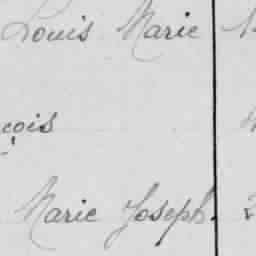 Louis Marie
çois
Marie Joseph.